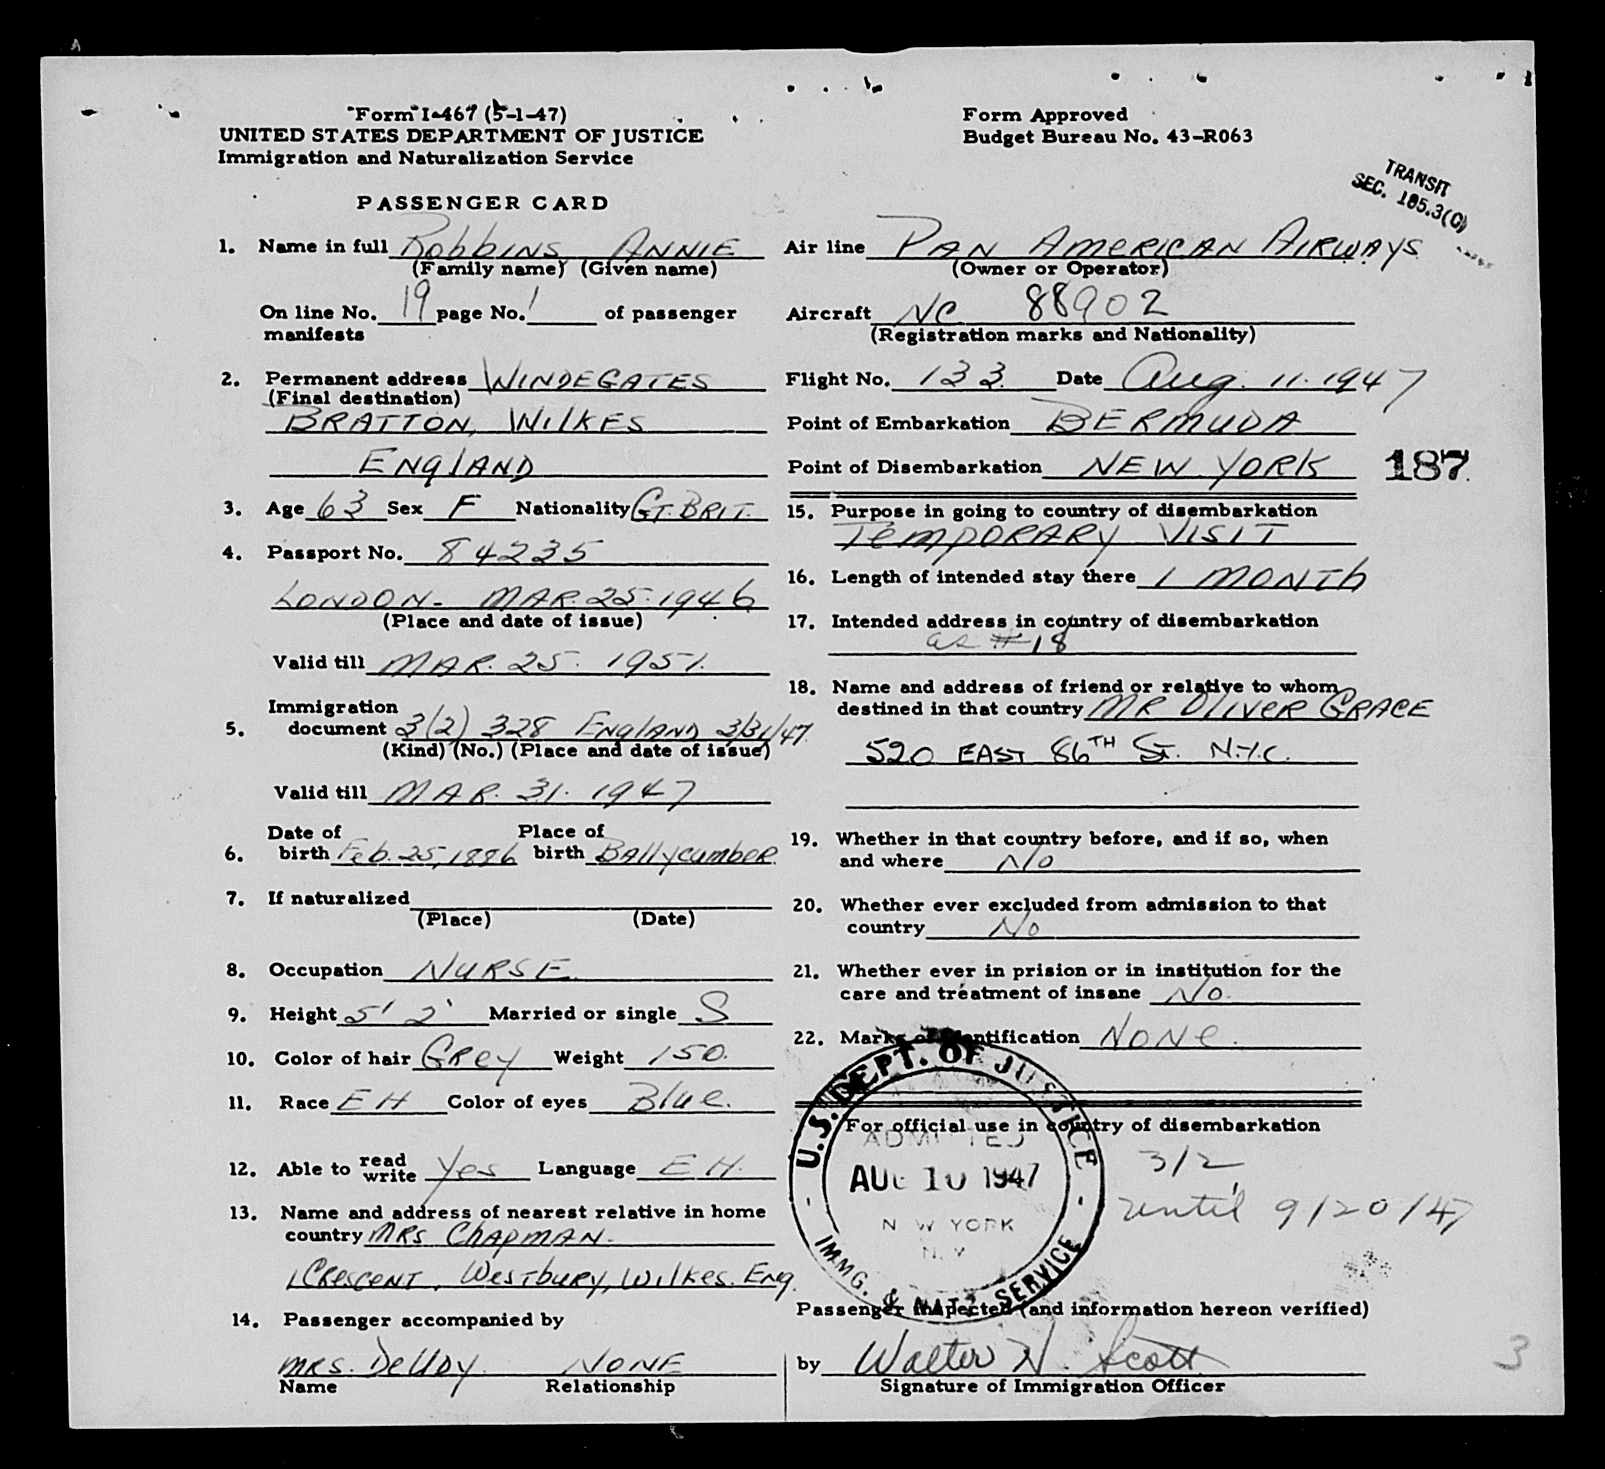 Form I-467 (5-1-47)
UNITED STATES DEPARTMENT OF JUSTICE
Immigration and Naturalization Service
PASSENGER CARD
1. Name in full Robbins, ANNIE
(Family name) (Given name)
On line No. 19 page No. 1 of passenger
manifests
2. Permanent address WINDEGATES
(Final destination)
BRATTON, WILKES
ENGLAND
3. Age 63 Sex F Nationality GT. BRIT.
4. Passport No. 84235
LONDON - MAR. 25. 1946
(Place and date of issue)
Valid till MAR. 25. 1951.
Immigration
5. document 3(2) 328 ENGLAND 3/31/47.
(Kind) (No.) (Place and date of issue)
Valid till MAR. 31. 1947
Date of Place of
6. birth Feb. 25, 1886 birth BALLYCUMBER
7. If naturalized
(Place) (Date)
8. Occupation NURSE
9. Height 5' 2' Married or single S
10. Color of hair GREY Weight 150.
11. Race EH Color of eyes Blue.
12. Able to read write Yes Language EH.
13. Name and address of nearest relative in home
country MRS CHAPMAN.
1 CRESCENT, WESTBURY, WILKES. ENG.
14. Passenger accompanied by
MRS. DeUDY. NONE
Name Relationship
Form Approved
Budget Bureau No. 43-R063
TRANSIT
SEC. 105.3(C)
Air line PAN AMERICAN AIRWAYS
(Owner or Operator)
Aircraft NC 88902
(Registration marks and Nationality)
Flight No. 133 Date Aug. 11. 1947
Point of Embarkation BERMUDA
Point of Disembarkation NEW YORK
187
15. Purpose in going to country of disembarkation
TEMPORARY VISIT
16. Length of intended stay there 1 MONTH
17. Intended address in country of disembarkation
as #18
18. Name and address of friend or relative to whom
destined in that country MR OLIVER GRACE
520 EAST 86TH ST. N.Y.C.
19. Whether in that country before, and if so, when
and where No
20. Whether ever excluded from admission to that
country No
21. Whether ever in prision or in institution for the
care and treatment of insane No.
22. Marks of identification NONE.
For official use in country of disembarkation
U.S. DEPT. OF JUSTICE
ADMITTED
AUG 10 1947
NEW YORK
N.Y.
IMMG. & NATZ. SERVICE
3/2
until 9/20/47
Passenger inspected (and information hereon verified)
by Walter N. Scott
Signature of Immigration Officer
3